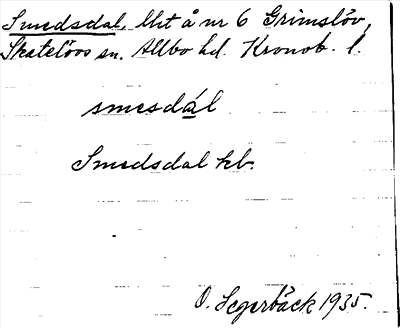 Smedsdal, lht å nr 6 Grimslöv,
Skatelövs sn. Allbo hd. Kronob. l.
smesdál
Smedsdal kb.
O. Segerbäck 1935.